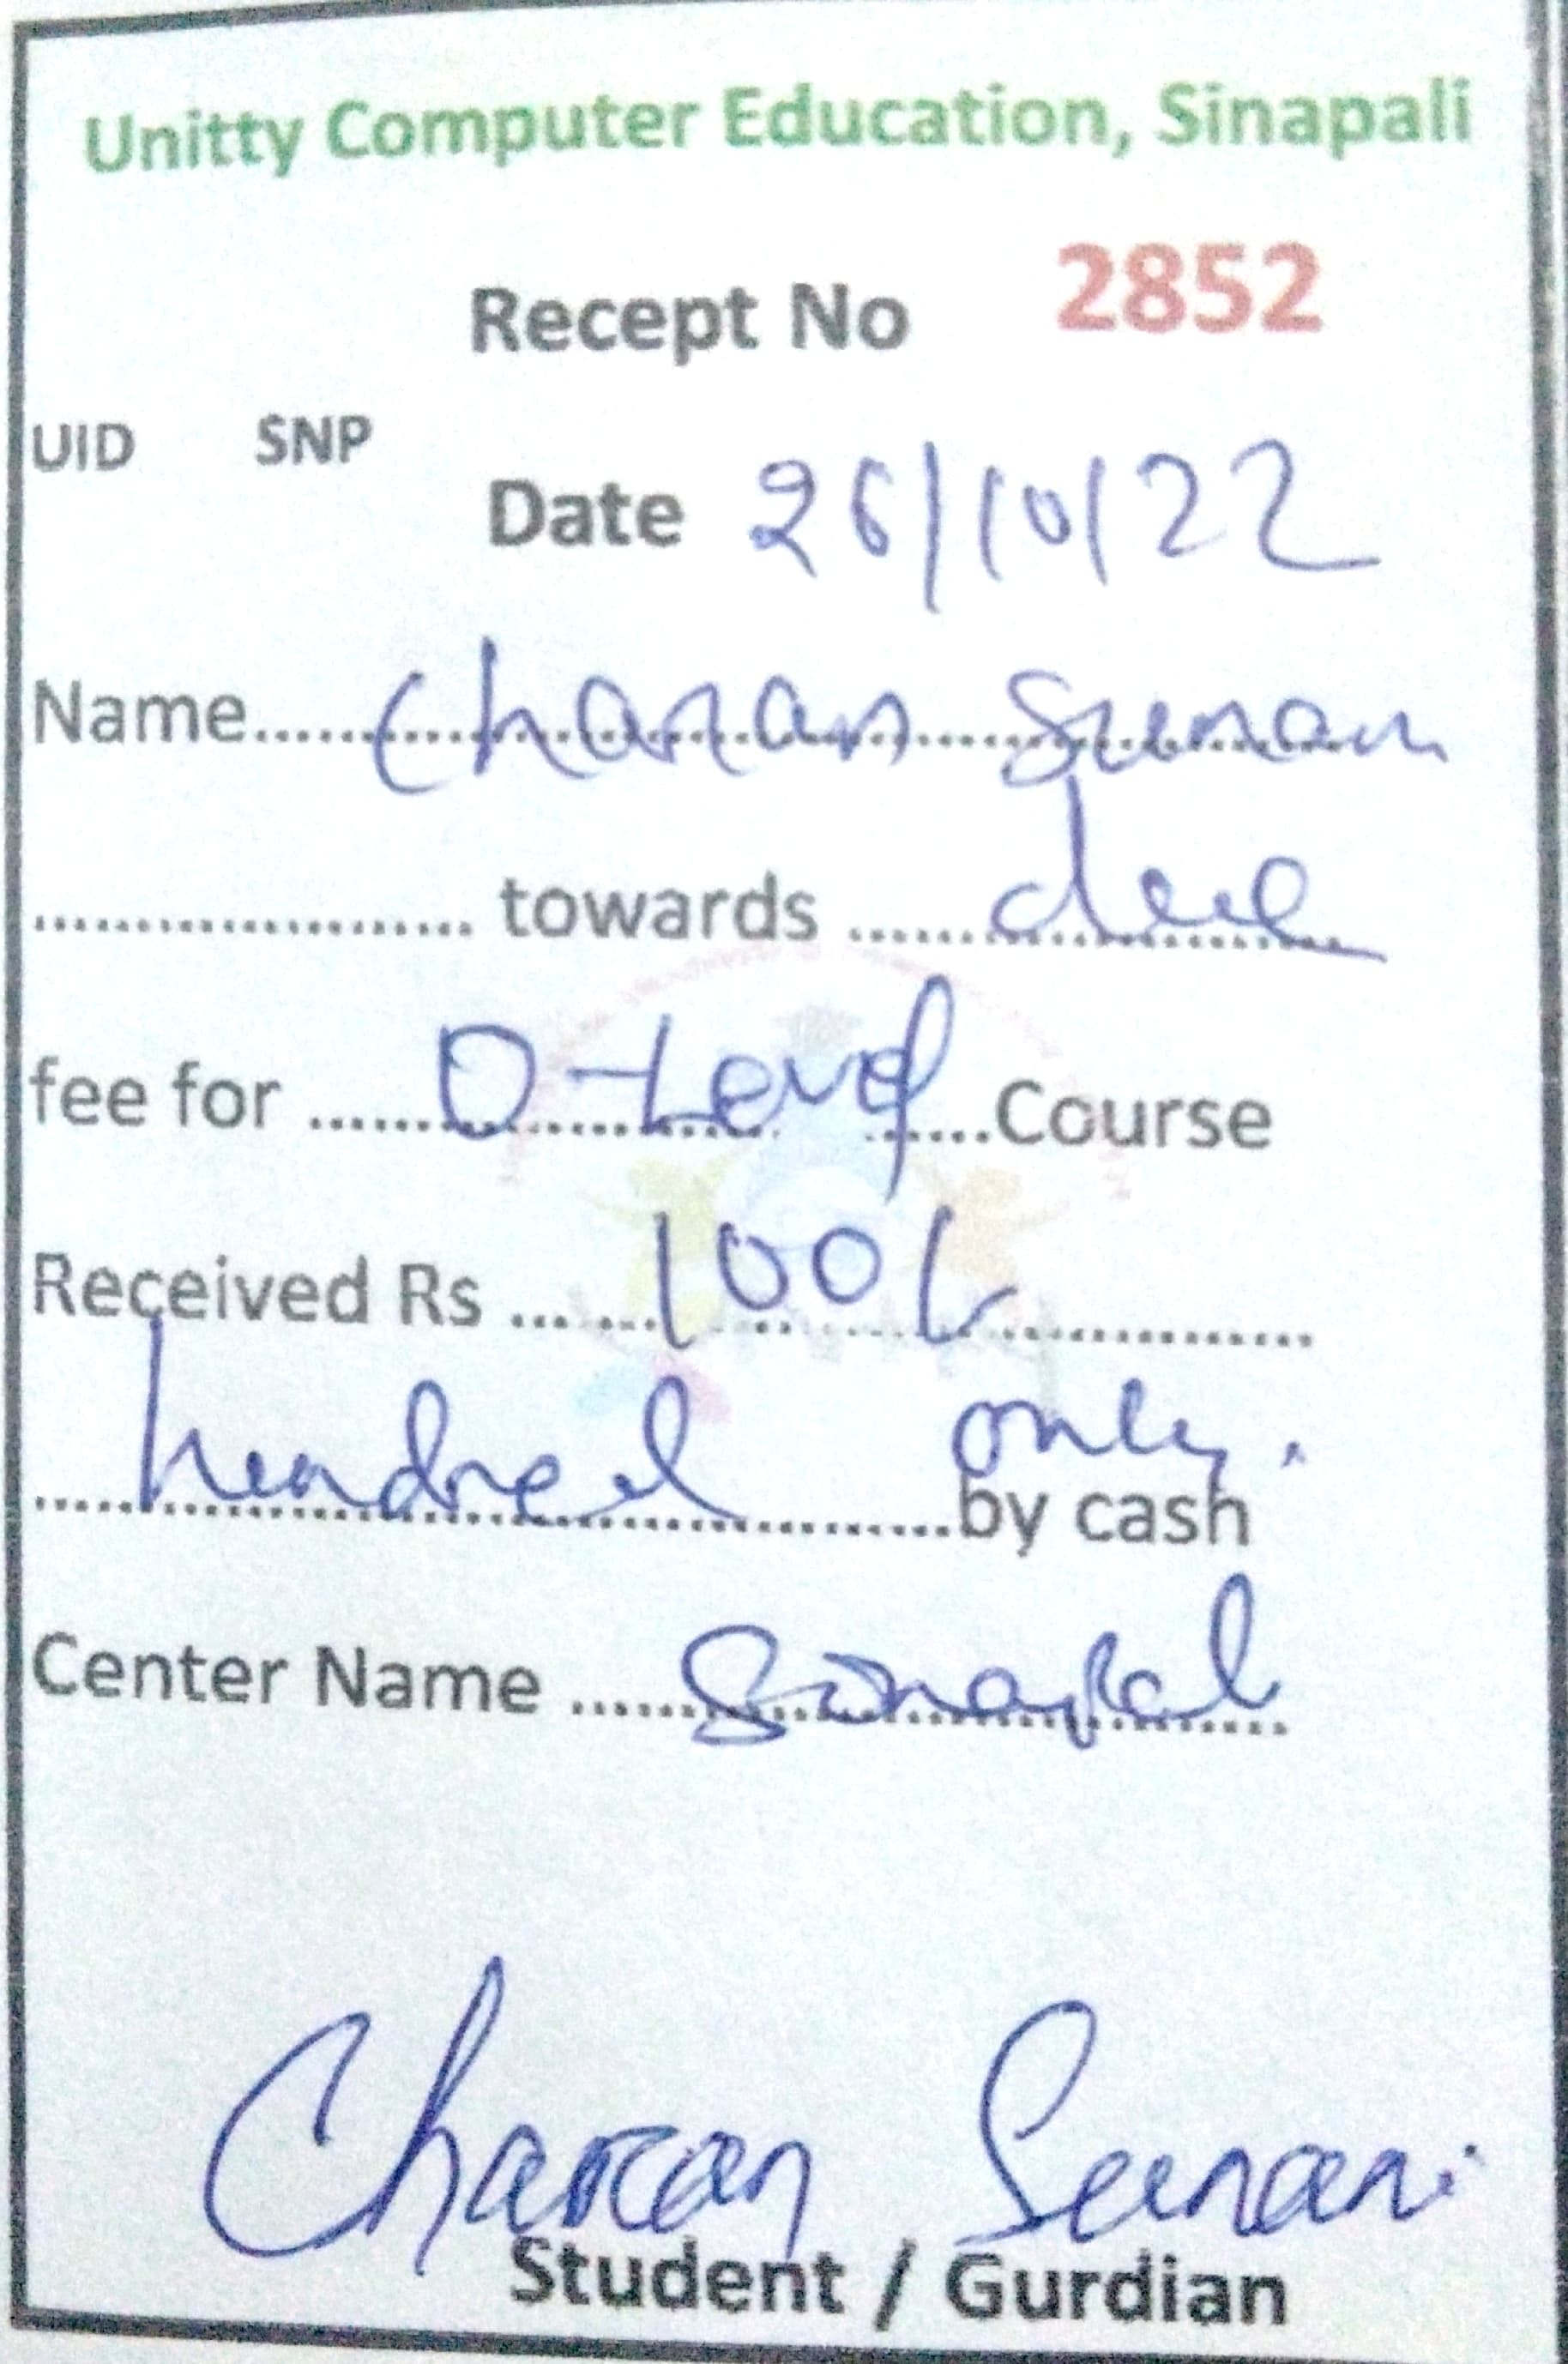 Unitty Computer Education, Sinapali
Recept No 2852
UID SNP
Date 26/10/22
Name.....Charan Sunani
..................... towards ..... due
fee for ..... O-Level .....Course
Received Rs ... 100/-
hundred only.
.....by cash
Center Name ..... Sinapali
Charan Sunani
Student / Gurdian